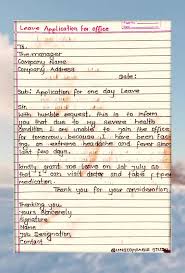 Leave Application for office
To.
The.manager
Company Name
Company Address
Date:
Sub: Application for one day Leave
Sir,
With humble request. This is to inform
you that due to my severe health
condition I am unable to join the office
for tomorrow. because I have been
an extreme headache and fever since
last few days.
kindly grant me leave on 1st july so
that "I" can visit doctor and take
medication.
Thank you for your consideration
Thanking you.
Yours Sincerely
Signature
Name
Job Designation
Contact